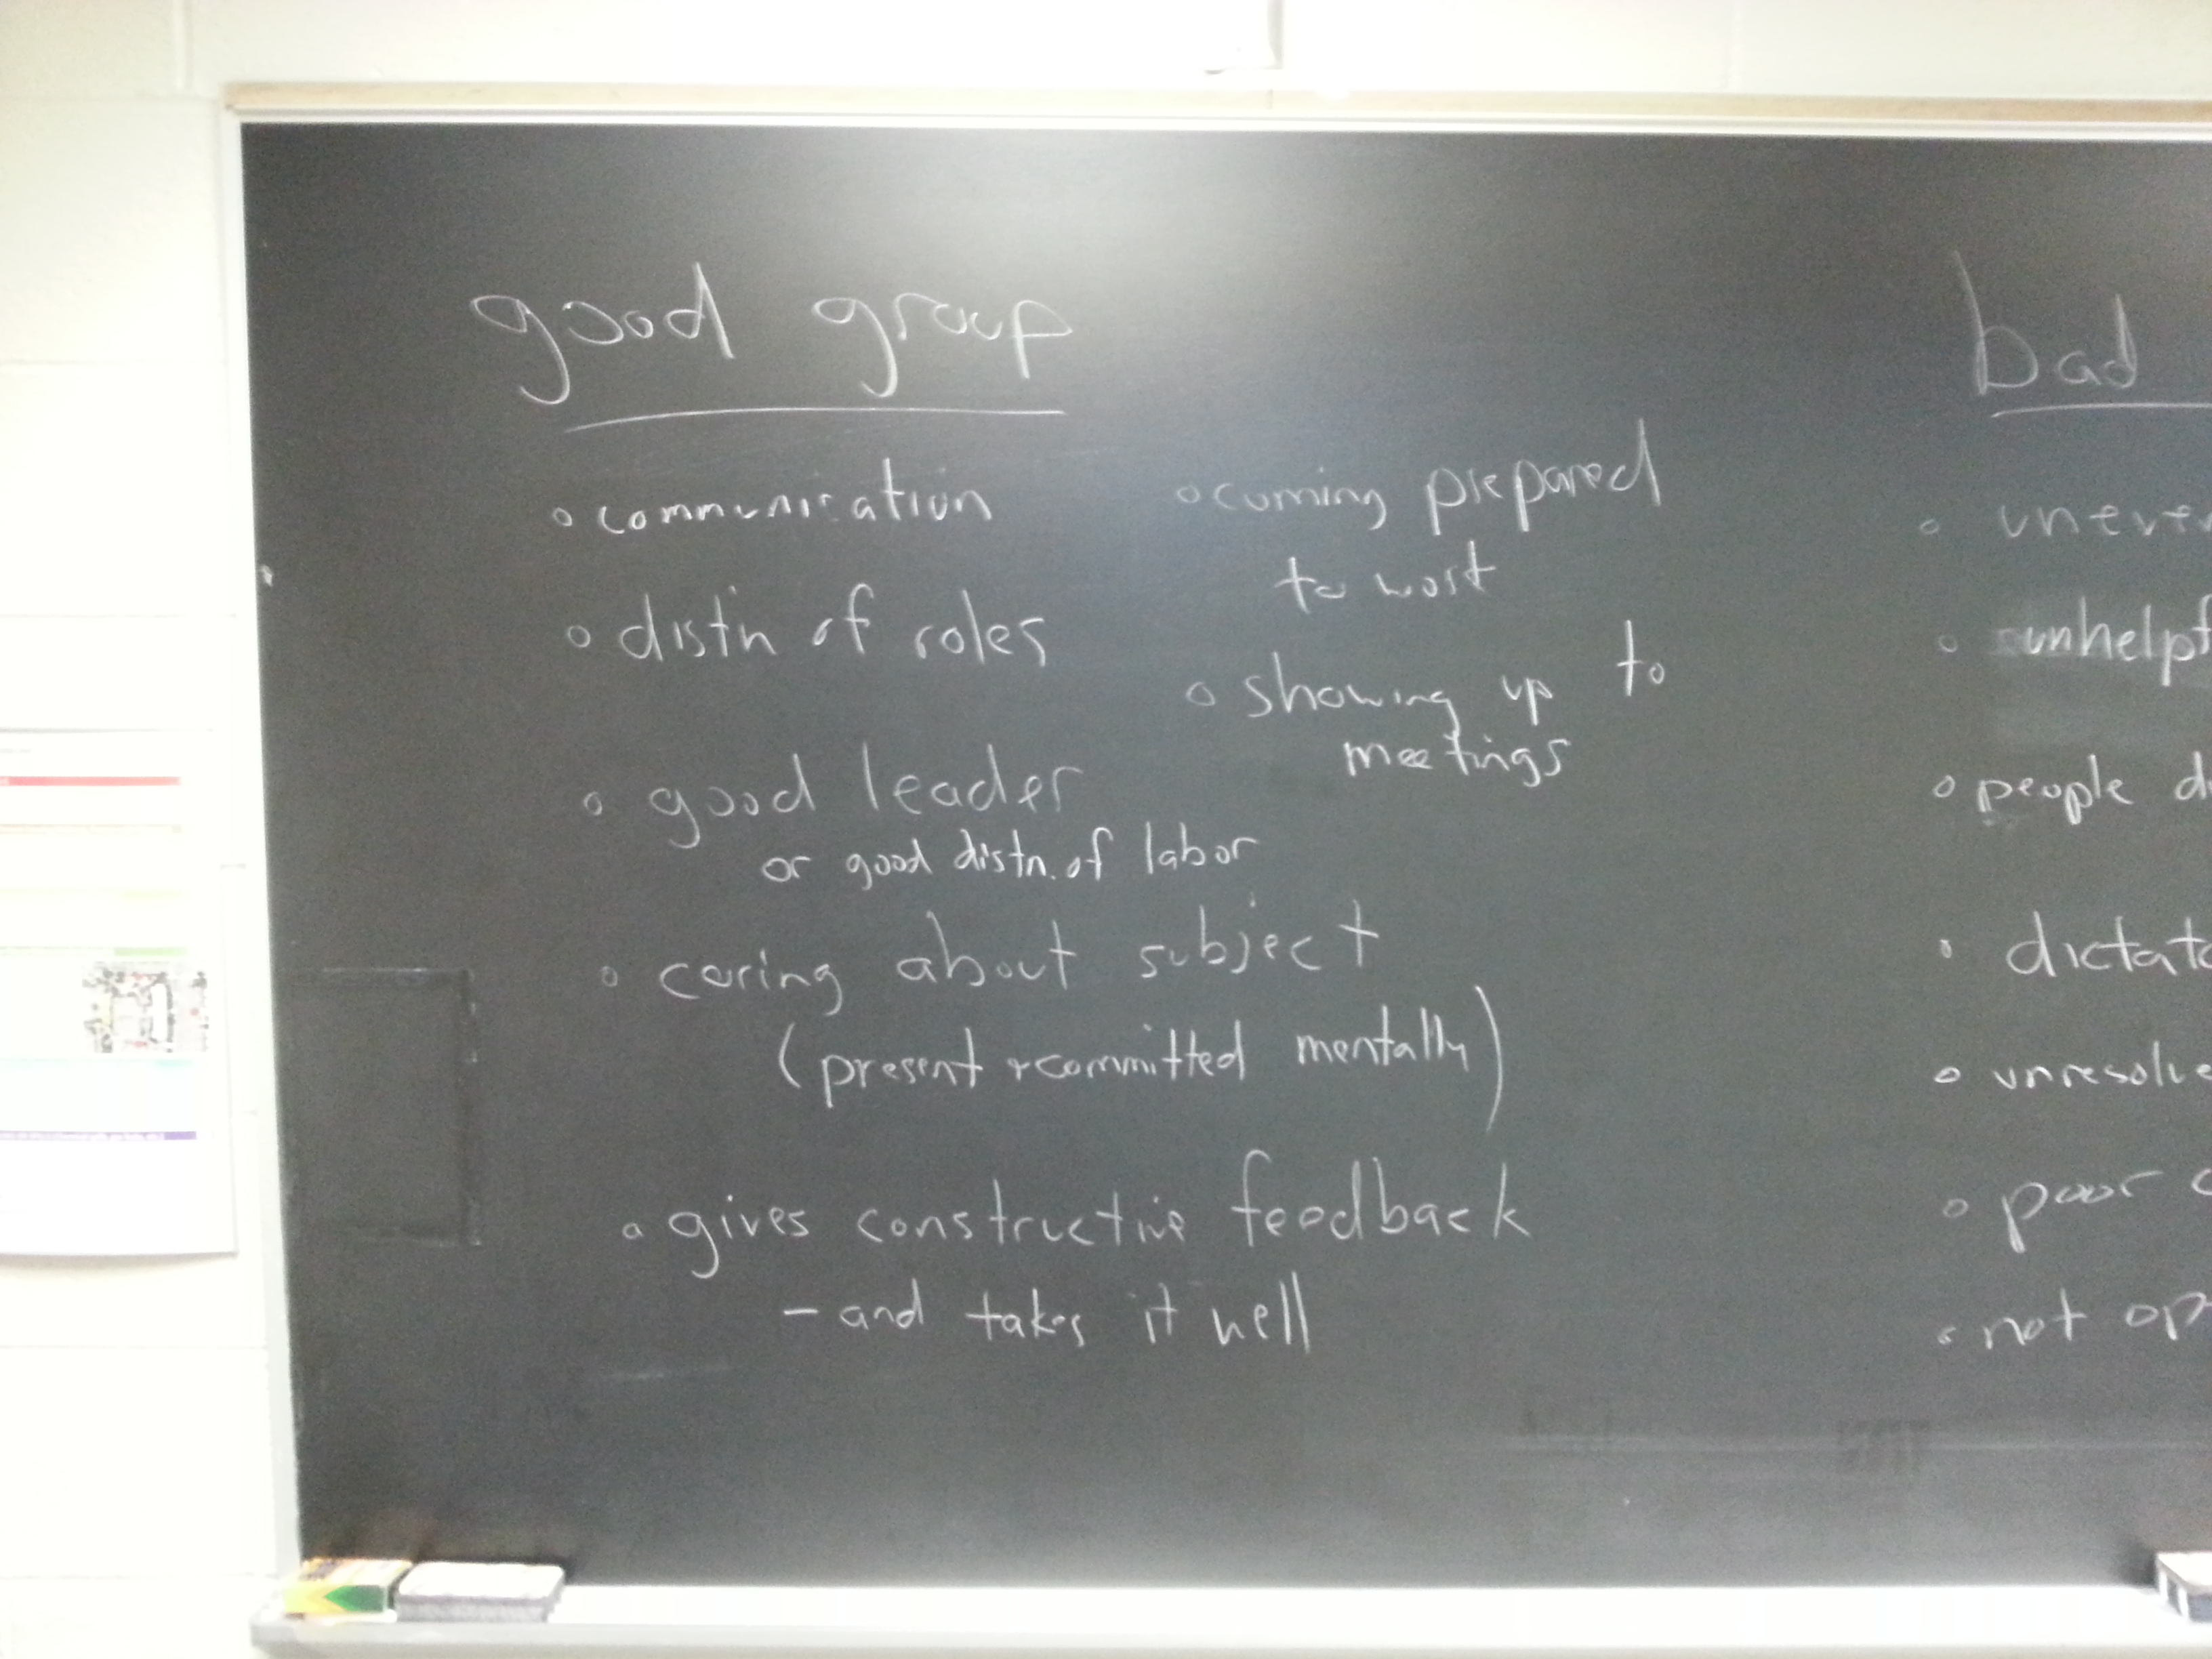 good group
◦ communication
◦ distn of roles
◦ good leader
or good distn. of labor
◦ caring about subject
(present + committed mentally)
◦ gives constructive feedback
– and takes it well
◦ coming prepared
to work
◦ showing up to
meetings
bad
◦ uneve
◦ unhelpf
◦ people d
◦ dictato
◦ unresolve
◦ poor c
◦ not op